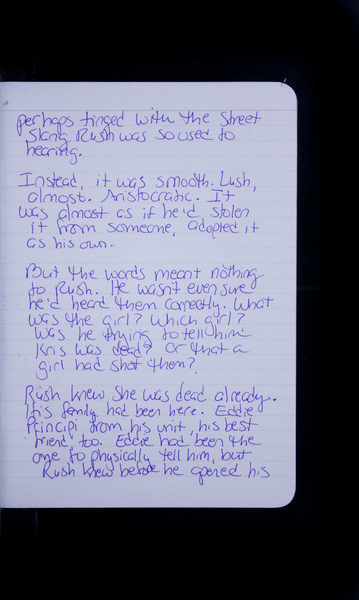 perhaps tinged with the street
slang Rush was so used to
hearing.
Instead, it was smooth. Lush,
almost. Aristocratic. It
was almost as if he'd stolen
it from someone, adopted it
as his own.
But the words meant nothing
to Rush. He wasn't even sure
he'd heard them correctly. What
was the girl? Which girl?
Was he trying to tell him
Kris was dead? Or that a
girl had shot them?
Rush knew she was dead already.
His family had been here. Eddie
Principi from his unit, his best
friend, too. Eddie had been the
one to physically tell him, but
Rush knew before he opened his